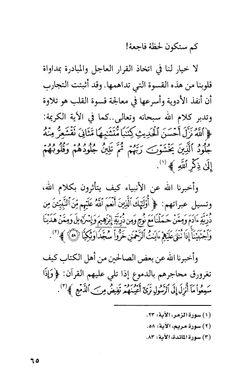 كم ستكون لحظة فاجعة!
لا خيار لنا في اتخاذ القرار العاجل والمبادرة بمداواة
قلوبنا من هذه القسوة التي تداهمها. وقد أثبتت التجارب
أن أنفذ الأدوية وأسرعها في معالجة قسوة القلب هو تلاوة
وتدبر كلام الله سبحانه وتعالى..كما في الآية الكريمة:
﴿ اللَّهُ نَزَّلَ أَحْسَنَ الْحَدِيثِ كِتَابًا مُتَشَابِهًا مَثَانِيَ تَقْشَعِرُّ مِنْهُ
جُلُودُ الَّذِينَ يَخْشَوْنَ رَبَّهُمْ ثُمَّ تَلِينُ جُلُودُهُمْ وَقُلُوبُهُمْ
إِلَى ذِكْرِ اللَّهِ ﴾(١).
وأخبرنا الله عن الأنبياء كيف يتأثرون بكلام الله،
وتسيل عبراتهم: ﴿ أُولَئِكَ الَّذِينَ أَنْعَمَ اللَّهُ عَلَيْهِمْ مِنَ النَّبِيِّينَ مِنْ
ذُرِّيَّةِ آدَمَ وَمِمَّنْ حَمَلْنَا مَعَ نُوحٍ وَمِنْ ذُرِّيَّةِ إِبْرَاهِيمَ وَإِسْرَائِيلَ وَمِمَّنْ هَدَيْنَا
وَاجْتَبَيْنَا إِذَا تُتْلَى عَلَيْهِمْ آيَاتُ الرَّحْمَنِ خَرُّوا سُجَّدًا وَبُكِيًّا ﴿٥٨﴾ ﴾(٢).
وأخبرنا الله عن بعض الصالحين من أهل الكتاب كيف
تغرورق محاجرهم بالدموع إذا تلي عليهم القرآن: ﴿ وَإِذَا
سَمِعُوا مَا أُنْزِلَ إِلَى الرَّسُولِ تَرَى أَعْيُنَهُمْ تَفِيضُ مِنَ الدَّمْعِ ﴾(٣).
(١) سورة الزمر، الآية: ٢٣.
(٢) سورة مريم، الآية: ٥٨.
(٣) سورة المائدة، الآية: ٨٣.
٦٥